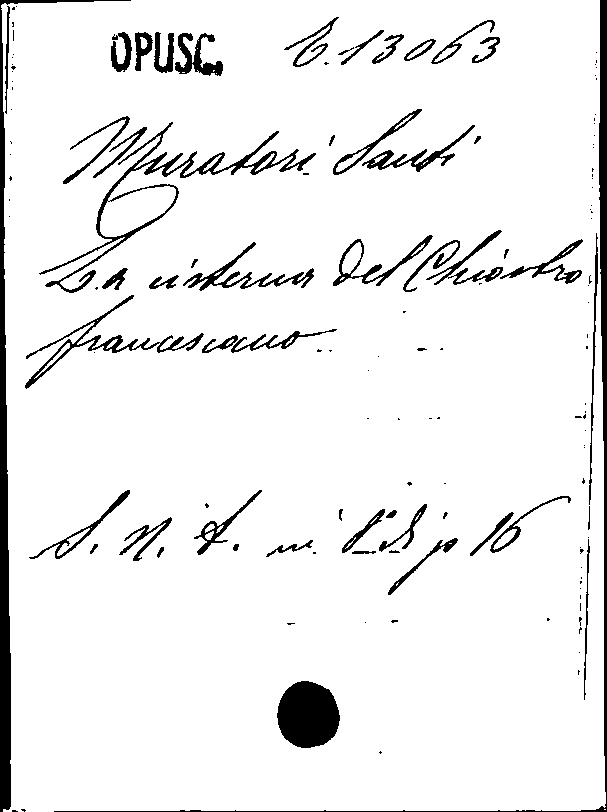 OPUSC. E.13063
Muratori Santi
La cisterna del Chiostro
francescano
S. n. t. in 8° di p 16